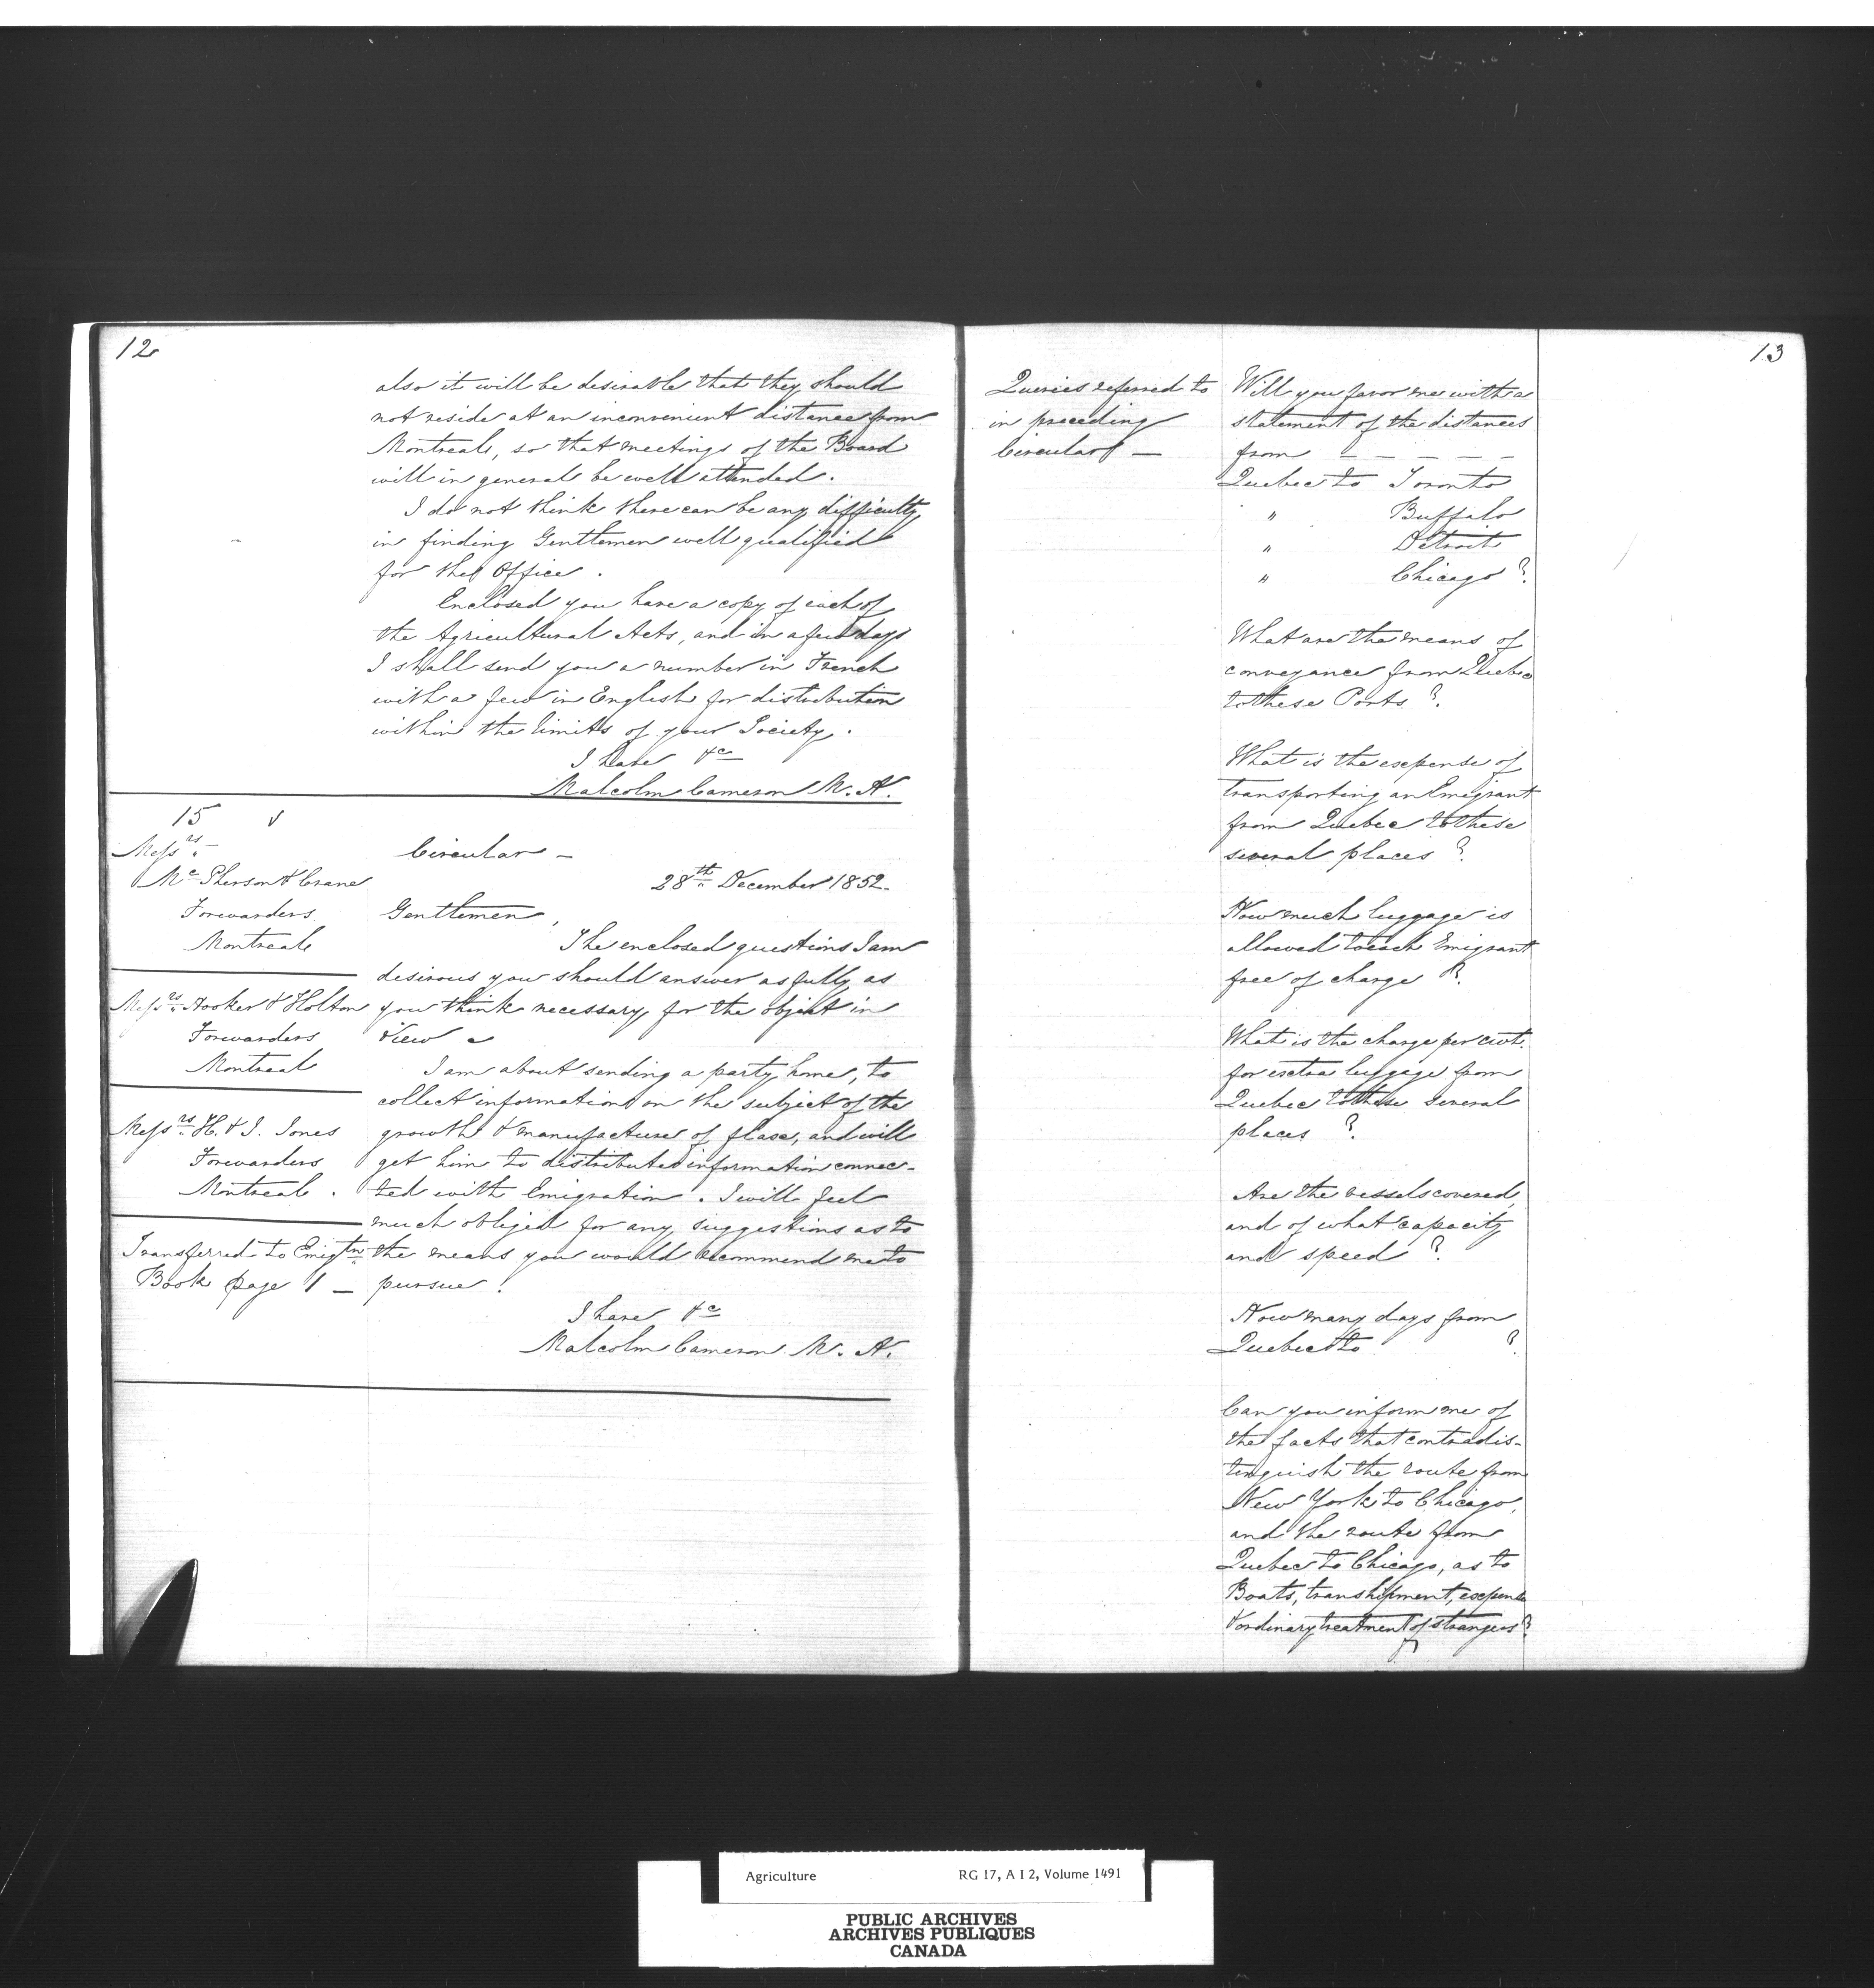 12
also it will be desirable that they should
not reside at an inconvenient distance from
Montreal, so that meetings of the Board
will in general be well attended.
I do not think there can be any difficulty
in finding Gentlemen well qualified
for the Office.
Enclosed you have a copy of each of
the Agricultural Acts, and in a few days
I shall send you a number in French
with a few in English for distribution
within the limits of your Society.
I have &c
Malcolm Cameron M. A.
15 √
Messrs.
McPherson & Crane
Forwarders
Montreal
Messrs. Hooker & Holton
Forwarders
Montreal
Messrs. H. & S. Jones
Forwarders
Montreal.
Transferred to Emigtn.
Book page 1 —
Circular —
28th December 1852.
Gentlemen,
The enclosed questions I am
desirous you should answer as fully as
you think necessary for the object in
view —
I am about sending a party home, to
collect information on the subject of the
growth & manufacture of flax, and will
get him to distribute information connec-
ted with Emigration. I will feel
much obliged for any suggestions as to
the means you would recommend me to
pursue.
I have &c
Malcolm Cameron M. A.
13
Queries referred to
in preceding
Circular —
Will you favor me with a
statement of the distances
from — — — — —
Quebec to Toronto
" Buffalo
" Detroit
" Chicago?
What are the means of
conveyance from Quebec
to these Ports?
What is the expense of
transporting an Emigrant
from Quebec to these
several places?
How much luggage is
allowed to each Emigrant
free of charge?
What is the charge per cwt.
for extra luggage from
Quebec to these several
places?
Are the vessels covered,
and of what capacity
and speed?
How many days from
Quebec to ?
Can you inform me of
the facts that contradis-
tinguish the route from
New York to Chicago,
and the route from
Quebec to Chicago, as to
Boats, transhipment, expense
& ordinary treatment of strangers?
Agriculture RG 17, A I 2, Volume 1491
PUBLIC ARCHIVES
ARCHIVES PUBLIQUES
CANADA